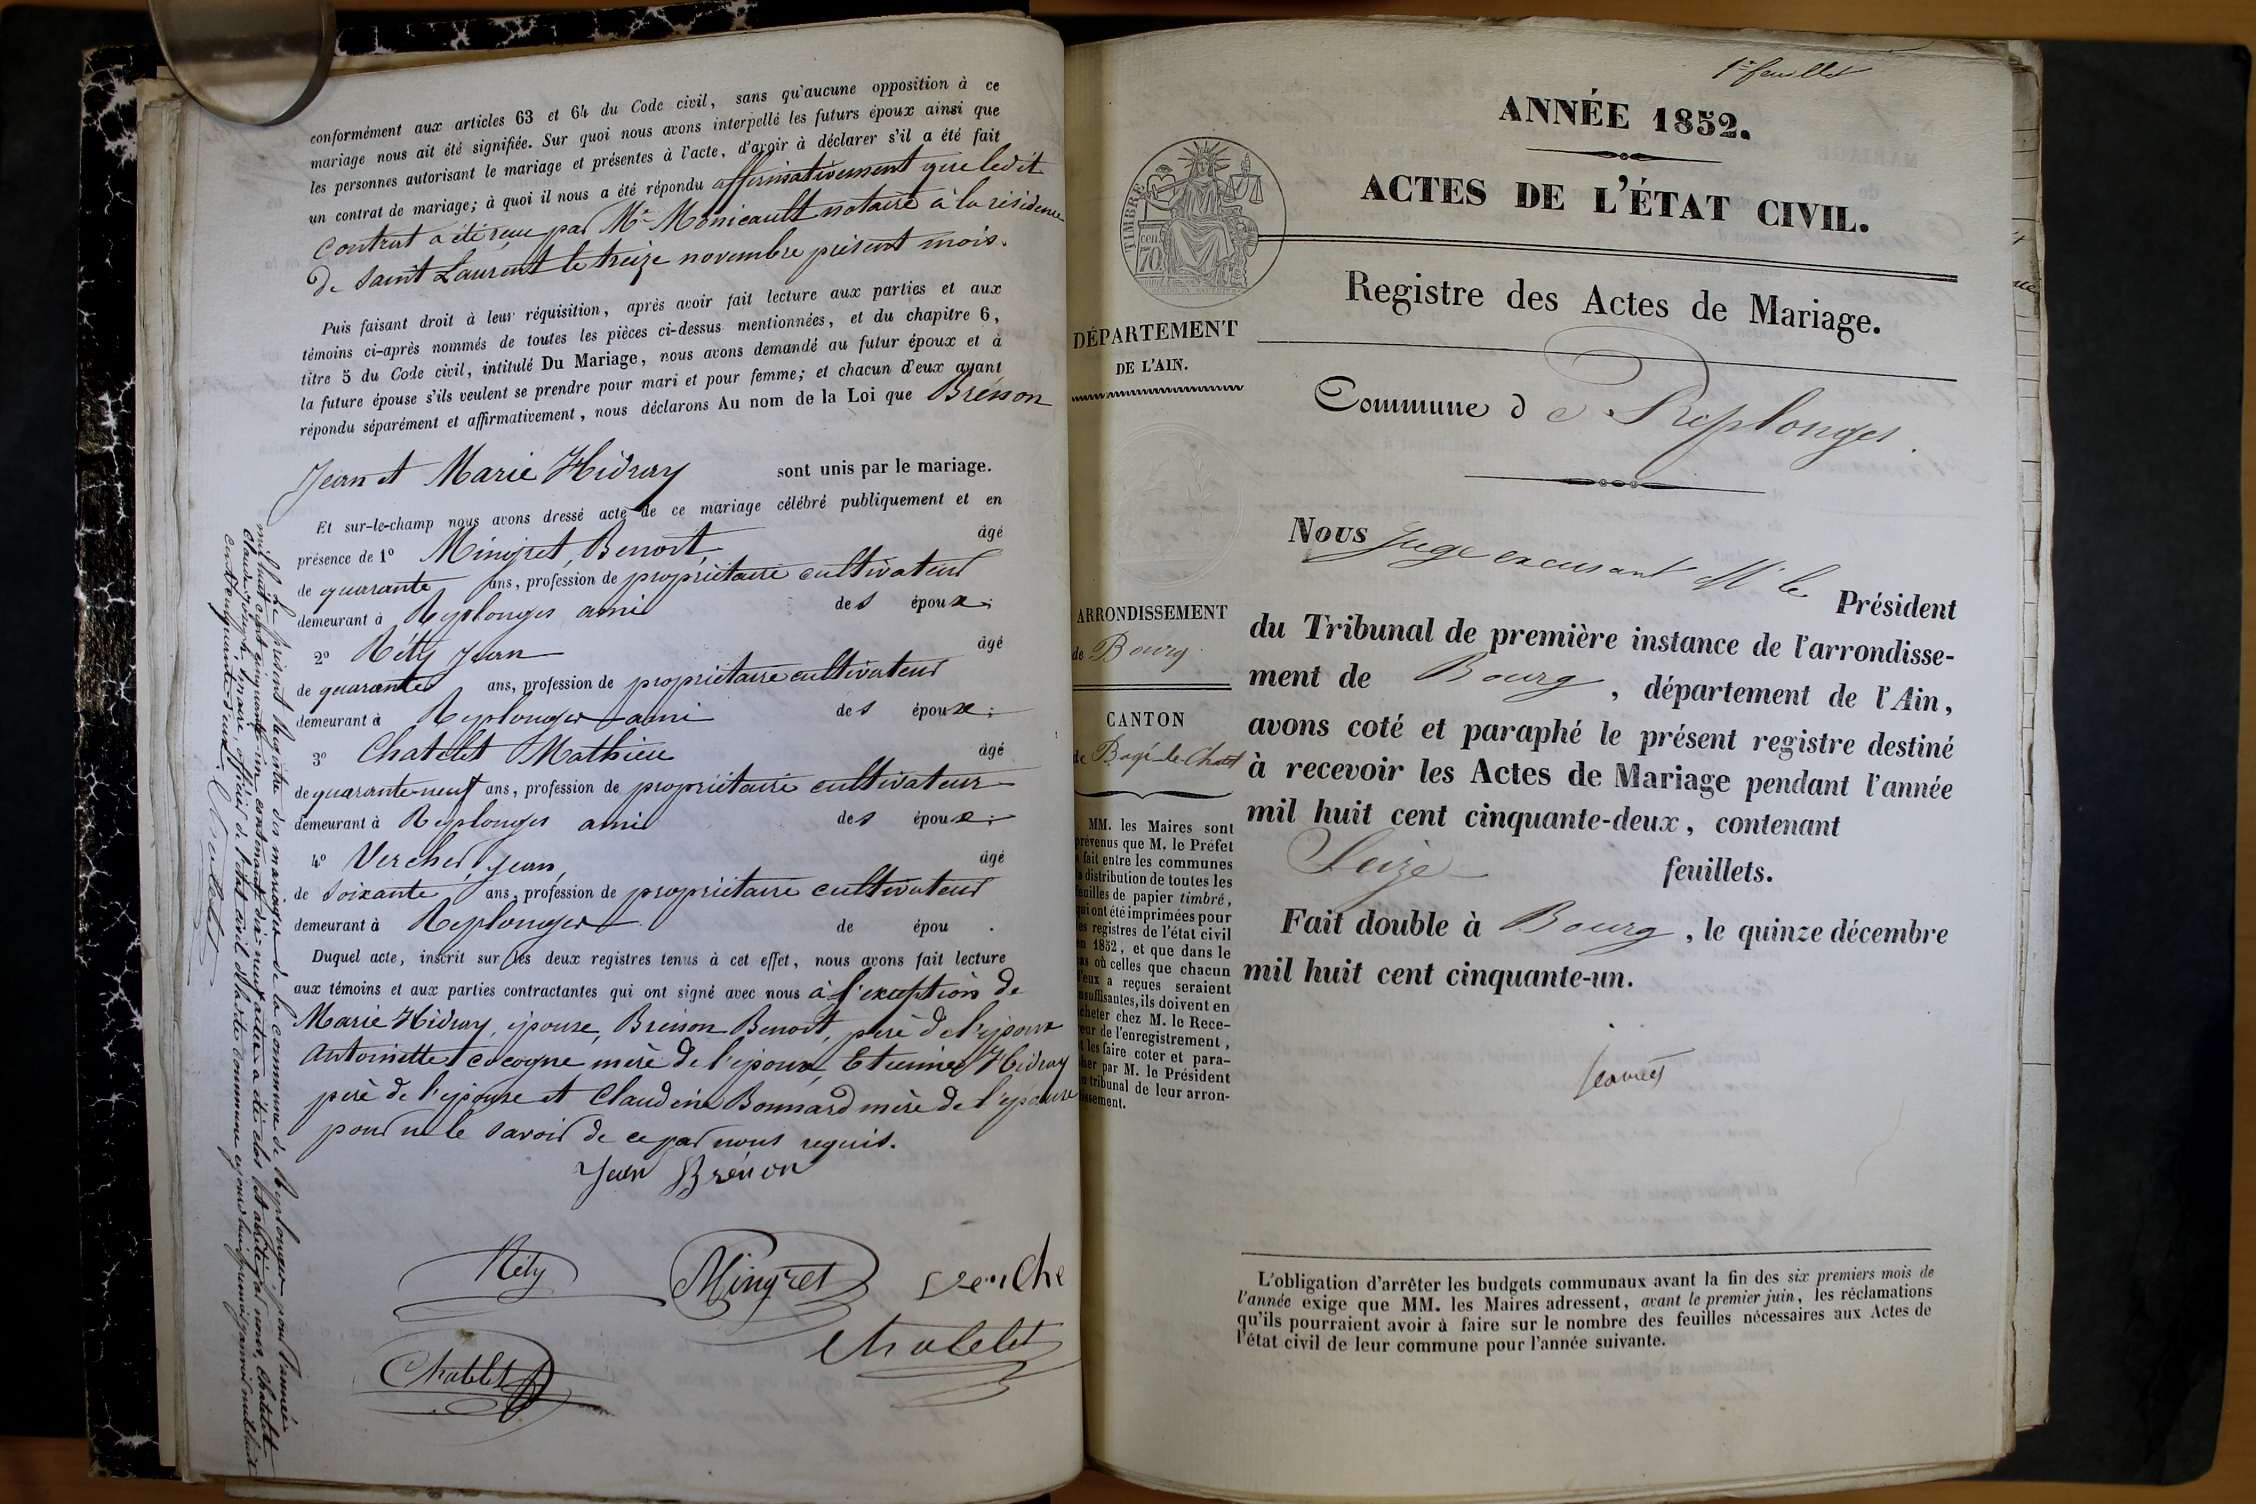 conformément aux articles 63 et 64 du Code civil, sans qu'aucune opposition à ce
mariage nous ait été signifiée. Sur quoi nous avons interpellé les futurs époux ainsi que
les personnes autorisant le mariage et présentes à l'acte, d'avoir à déclarer s'il a été fait
un contrat de mariage; à quoi il nous a été répondu affirmativement que ledit
contrat a été reçu par Me Monicault notaire à la résidence
de Saint Laurent le treize novembre présent mois.
Puis faisant droit à leur réquisition, après avoir fait lecture aux parties et aux
témoins ci-après nommés de toutes les pièces ci-dessus mentionnées, et du chapitre 6,
titre 5 du Code civil, intitulé Du Mariage, nous avons demandé au futur époux et à
la future épouse s'ils veulent se prendre pour mari et pour femme; et chacun d'eux ayant
répondu séparément et affirmativement, nous déclarons Au nom de la Loi que Brésson
Jean et Marie Hidray sont unis par le mariage.
Et sur-le-champ nous avons dressé acte de ce mariage célébré publiquement et en
présence de 1º Mingret, Benoit, âgé
de quarante ans, profession de propriétaire cultivateur
demeurant à Replonges ami des époux;
2º Réty Jean âgé
de quarante ans, profession de propriétaire cultivateur
demeurant à Replonges ami des époux;
3º Chatelet Mathieu âgé
de quarante-neuf ans, profession de propriétaire cultivateur
demeurant à Replonges ami des époux;
4º Vercher, Jean, âgé
de soixante ans, profession de propriétaire cultivateur
demeurant à Replonges de épou .
Duquel acte, inscrit sur les deux registres tenus à cet effet, nous avons fait lecture
aux témoins et aux parties contractantes qui ont signé avec nous à l'exception de
Marie Hidray, épouse, Bresson Benoit, père de l'époux
Antoinette Cocogne mère de l'époux, Etienne Hidray
père de l'épouse et Claudine Bonnard mère de l'épouse
pour ne le savoir de ce par nous requis.
Jean Brésson
Réty Mingret Verche
Chatelet Chatelet
Le présent Registre des mariages de la commune de Replonges pour l'année
mil huit cent cinquante un contenant dix-neuf actes a été clos et arrêté par nous, Chatelet
Claude Joseph, Maire officier de l'état civil de ladite commune ce jourd'hui premier janvier mil huit
cent cinquante deux.
Chatelet
1er feuillet
ANNÉE 1852.
ACTES DE L'ÉTAT CIVIL.
Registre des Actes de Mariage.
Commune de Replonges.
TIMBRE
cen
70
DÉPARTEMENT
DE L'AIN.
ARRONDISSEMENT
de Bourg
CANTON
de Bagé-le-Chatel
MM. les Maires sont
prévenus que M. le Préfet
a fait entre les communes
la distribution de toutes les
feuilles de papier timbré,
qui ont été imprimées pour
les registres de l'état civil
en 1852, et que dans le
cas où celles que chacun
d'eux a reçues seraient
insuffisantes, ils doivent en
acheter chez M. le Rece-
veur de l'enregistrement,
et les faire coter et para-
pher par M. le Président
du tribunal de leur arron-
dissement.
Nous Juge excusant M. le Président
du Tribunal de première instance de l'arrondisse-
ment de Bourg, département de l'Ain,
avons coté et paraphé le présent registre destiné
à recevoir les Actes de Mariage pendant l'année
mil huit cent cinquante-deux, contenant
Seize feuillets.
Fait double à Bourg, le quinze décembre
mil huit cent cinquante-un.
L'obligation d'arrêter les budgets communaux avant la fin des six premiers mois de
l'année exige que MM. les Maires adressent, avant le premier juin, les réclamations
qu'ils pourraient avoir à faire sur le nombre des feuilles nécessaires aux Actes de
l'état civil de leur commune pour l'année suivante.